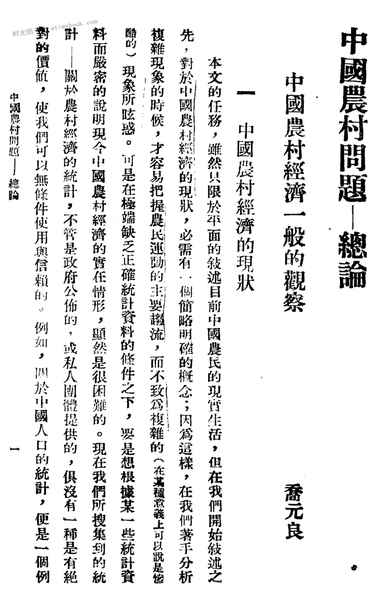 中國農村問題——總論
中國農村經濟一般的觀察
喬元良
一 中國農村經濟的現狀
本文的任務，雖然只限於平面的敍述目前中國農民的現實生活，但在我們開始敍述之
先，對於中國農村經濟的現狀，必需有一個簡略明確的槪念；因爲這樣，在我們著手分析
複雜現象的時候，才容易把握農民運動的主要趨流，而不致爲複雜的（在某種意義上可以說是
的）現象所眩惑。可是在極端缺乏正確統計資料的條件之下，要是想根據某一些統計資
料而嚴密的說明現今中國農村經濟的實在情形，顯然是很困難的。現在我們所搜集到的統
計——關於農村經濟的統計，不管是政府公佈的，或私人團體提供的，俱沒有一種是有絕
對的價值，使我們可以無條件使用與信賴的。例如，關於中國人口的統計，便是一個例
中國農村問題——總論
一